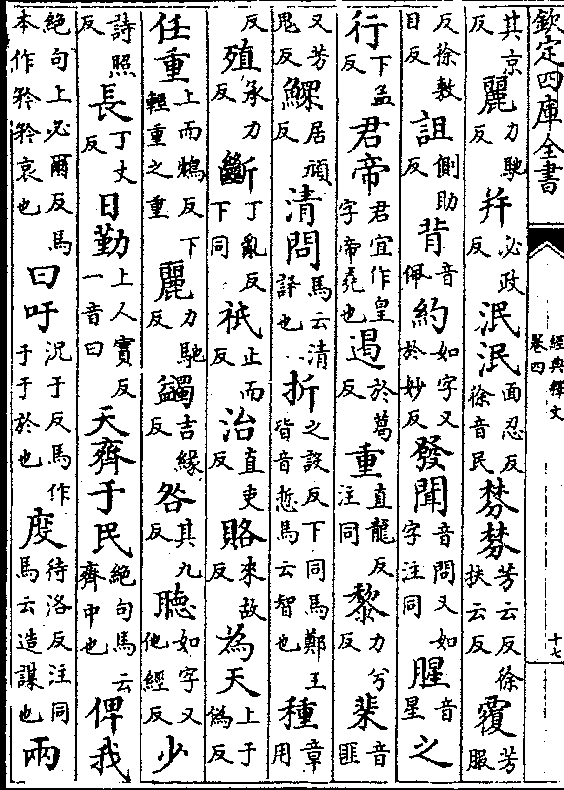 欽定四庫全書
經典釋文
卷四
十七
其京反麗力馳反并必政反泯泯面忍反徐音民棼棼芳云反徐扶云反覆芳服
反徐敷目反詛側助反背音佩約如字又於妙反發聞音問又如字注同腥音星之
行下孟反君帝君宜作皇字帝堯也遏於葛反重直龍反注同黎力兮反棐音匪
又芳鬼反鰥居頑反清問馬云清訊也折之設反下同馬鄭王皆音悊馬云智也種章用
反殖承力反斷丁亂反下同祇止而反治直吏反賂來故反為天上于偽反
任重上而鴆反下輕重之重麗力馳反蠲吉緣反咎其九反聽如字又他經反少
詩照反長丁丈反日勤上人實反一音曰天齊于民絕句馬云齊中也俾我
絕句上必爾反馬本作矜矜哀也曰吁況于反馬作于于於也度待洛反注同馬云造謀也兩